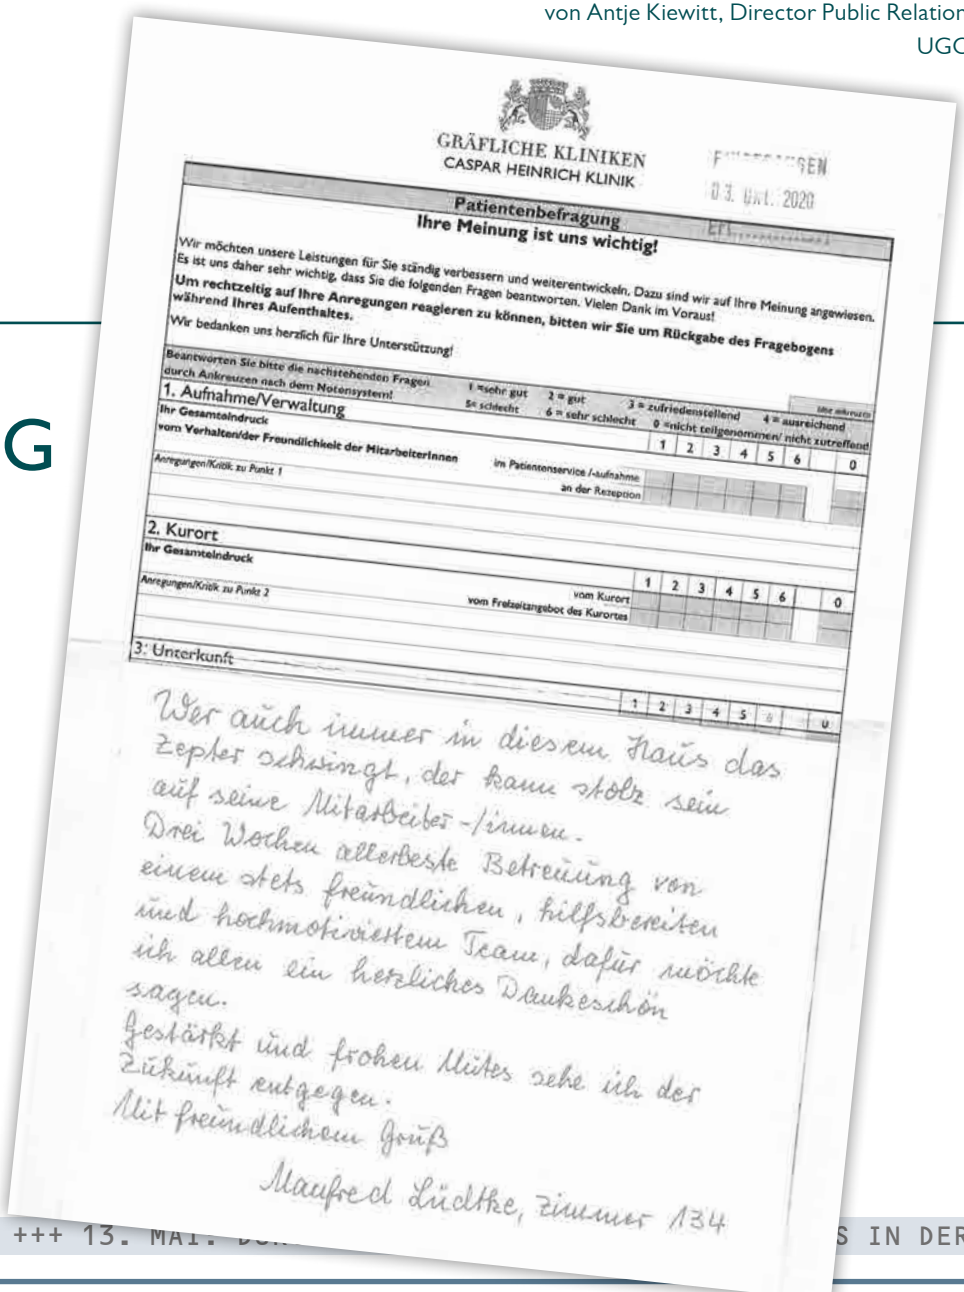 von Antje Kiewitt, Director Public Relation
UGO
G
GRÄFLICHE KLINIKEN
CASPAR HEINRICH KLINIK
03. 2020
Patientenbefragung
Ihre Meinung ist uns wichtig!
Wir möchten unsere Leistungen für Sie ständig verbessern und weiterentwickeln. Dazu sind wir auf Ihre Meinung angewiesen.
Es ist uns daher sehr wichtig, dass Sie die folgenden Fragen beantworten. Vielen Dank im Voraus!
Um rechtzeitig auf Ihre Anregungen reagieren zu können, bitten wir Sie um Rückgabe des Fragebogens
während Ihres Aufenthaltes.
Wir bedanken uns herzlich für Ihre Unterstützung!
Beantworten Sie bitte die nachstehenden Fragen
durch Ankreuzen nach dem Notensystem!
1 =sehr gut 2 = gut 3 = zufriedenstellend 4 = ausreichend
5= schlecht 6 = sehr schlecht 0 =nicht teilgenommen/ nicht zutreffend
1. Aufnahme/Verwaltung
1 2 3 4 5 6 0
Ihr Gesamteindruck
vom Verhalten/der Freundlichkeit der MitarbeiterInnen im Patientenservice /-aufnahme
an der Rezeption
Anregungen/Kritik zu Punkt 1
2. Kurort
1 2 3 4 5 6 0
Ihr Gesamteindruck vom Kurort
vom Freizeitangebot des Kurortes
Anregungen/Kritik zu Punkt 2
3. Unterkunft
1 2 3 4 5 6 0
Wer auch immer in diesem Haus das
Zepter schwingt, der kann stolz sein
auf seine Mitarbeiter-/innen.
Drei Wochen allerbeste Betreuung von
einem stets freundlichen, hilfsbereiten
und hochmotiviertem Team, dafür möchte
ich allen ein herzliches Dankeschön
sagen.
Gestärkt und frohen Mutes sehe ich der
Zukunft entgegen.
Mit freundlichem Gruß
Manfred Lüdtke, Zimmer 134
+++ 13. MAI: S IN DER